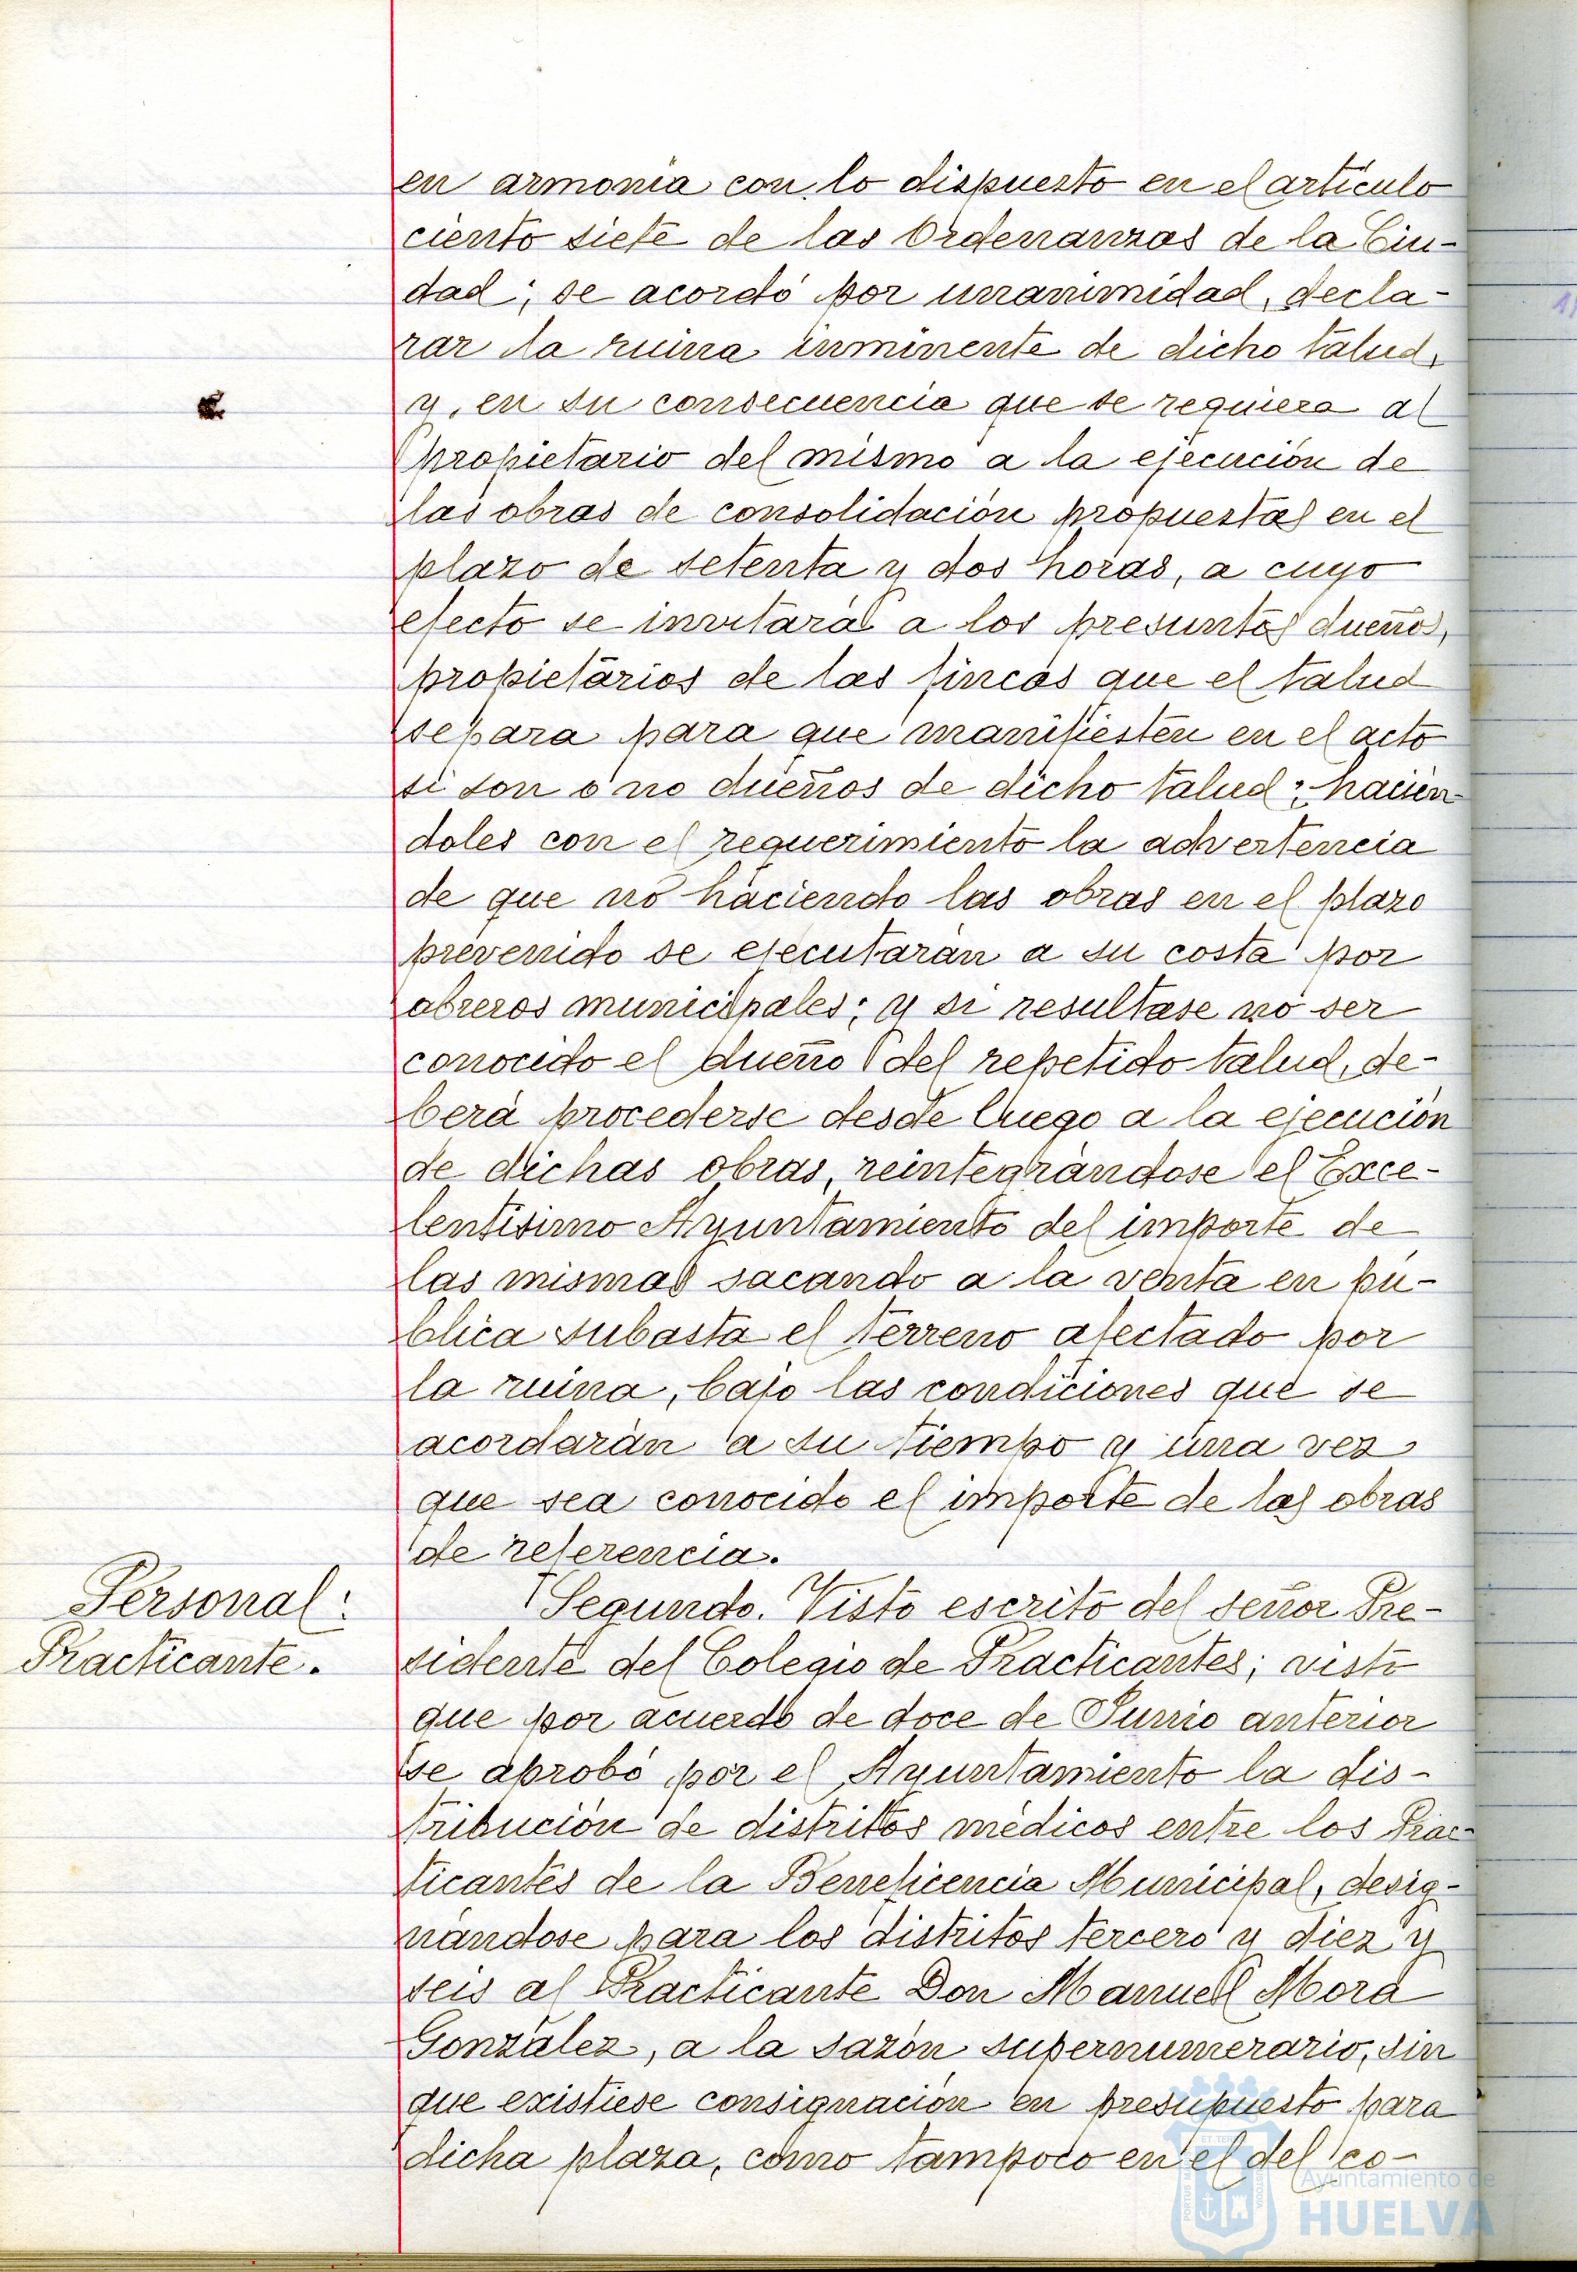 en armonía con lo dispuesto en el artículo
ciento siete de las Ordenanzas de la Ciu-
dad; se acordó por unanimidad, decla-
rar la ruina inminente de dicho talud,
y, en su consecuencia que se requiera al
propietario del mismo a la ejecución de
las obras de consolidación propuestas en el
plazo de setenta y dos horas, a cuyo
efecto se invitará a los presuntos dueños,
propietarios de las fincas que el talud
separa para que manifiesten en el acto
si son o no dueños de dicho talud; hacién-
doles con el requerimiento la advertencia
de que no haciendo las obras en el plazo
prevenido se ejecutarán a su costa por
obreros municipales; y si resultase no ser
conocido el dueño del repetido talud, de-
berá procederse desde luego a la ejecución
de dichas obras, reintegrándose el Exce-
lentísimo Ayuntamiento del importe de
las mismas sacando a la venta en pú-
blica subasta el terreno afectado por
la ruina, bajo las condiciones que se
acordarán a su tiempo y una vez
que sea conocido el importe de las obras
de referencia.
Personal:
Practicante.
Segundo. Visto escrito del señor Pre-
sidente del Colegio de Practicantes; visto
que por acuerdo de doce de Junio anterior
se aprobó por el Ayuntamiento la dis-
tribución de distritos médicos entre los Prac-
ticantes de la Beneficencia Municipal, desig-
nándose para los distritos tercero y diez y
seis al Practicante Don Manuel Mora
González, a la sazón supernumerario, sin
que existiese consignación en presupuesto para
dicha plaza, como tampoco en el del co-
Ayuntamiento de
HUELVA